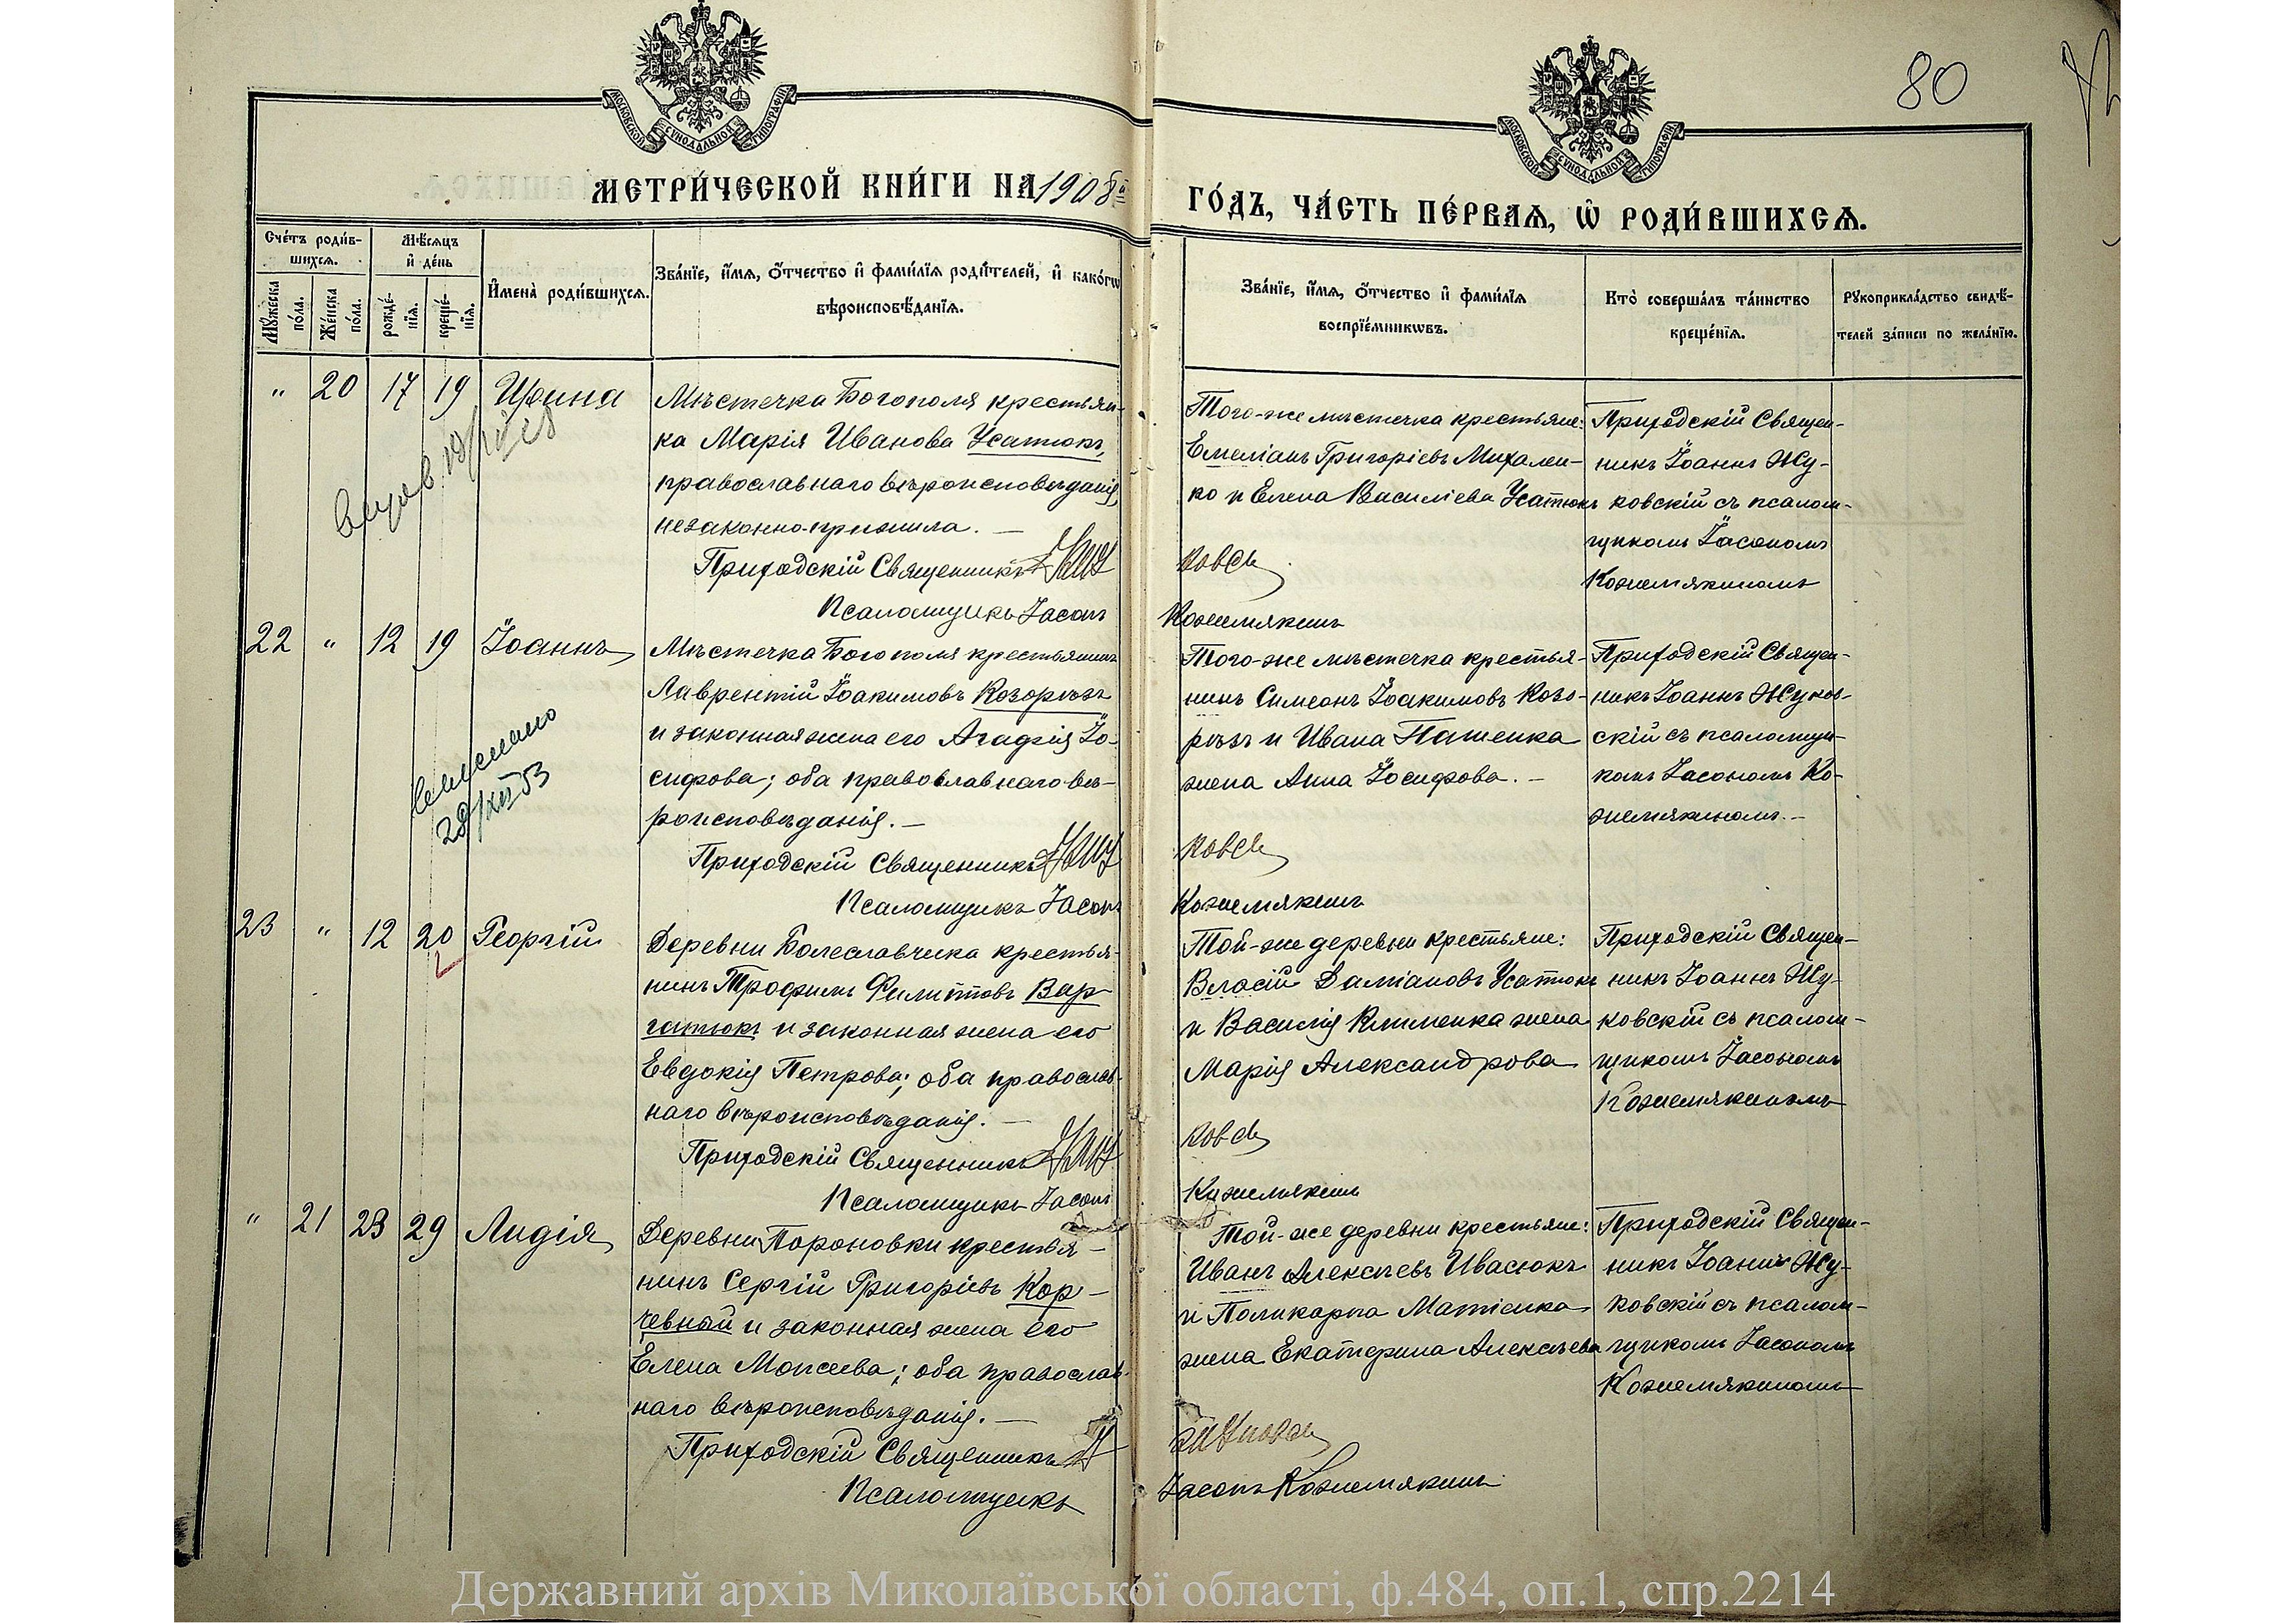 80
МОСКОВСКОЙ СѴНОДАЛЬНОЙ ТИПОГРАФІИ
МОСКОВСКОЙ СѴНОДАЛЬНОЙ ТИПОГРАФІИ
МЕТРИ́ЧЕСКОЙ КНИ́ГИ НА 1908й
ГО́ДЪ, ЧА́СТЬ ПЕ́РВАѦ, Ѡ҆ РОДИ́ВШИХСѦ.
Сче́тъ роди́в-
шихсѧ.
Мꙋ́жеска по́ла.
Же́нска по́ла.
Мѣ́сѧцъ
и҆ де́нь
рожде́-
нїѧ.
креще́-
нїѧ.
И҆мена̀ роди́вшихсѧ.
Зва́нїе, и҆́мѧ, ѻ҆́тчество и҆ фами́лїѧ роди́телей, и҆ како́гѡ
вѣроисповѣ́данїѧ.
Зва́нїе, и҆́мѧ, ѻ҆́тчество и҆ фами́лїѧ
воспрїе́мникѡвъ.
Кто̀ соверша́лъ та́инство
креще́нїѧ.
Рꙋкоприкла́дство свидѣ́-
телей за́писи по жела́нїю.
" 20 17 19 Ирина
Мѣстечка Богополя крестьян-
ка Марія Иванова Усатюкъ,
православнаго вѣроисповѣданія,
незаконно-прижила. —
Приходскій Священникъ Жу
Псаломщикъ Іасонъ
Того-же мѣстечка крестьяне:
Емеліанъ Григоріевъ Михален-
ко и Елена Василіева Усатюкъ
ковск
Кожемякинъ
Приходскій Священ-
никъ Іоаннъ Жу-
ковскій съ псалом-
щикомъ Іасономъ
Кожемякиномъ
22 " 12 19 Іоаннъ
28/XII 53
Мѣстечка Богополя крестьянинъ
Лаврентій Іоакимовъ Козорѣзъ
и законная жена его Агафія Іо-
сифова; оба православнаго вѣ-
роисповѣданія. —
Приходскій Священникъ Жу
Псаломщикъ Іасонъ
Того-же мѣстечка крестья-
нинъ Симеонъ Іоакимовъ Козо-
рѣзъ и Ивана Пашенка
жена Анна Іосифова. —
ковск
Кожемякинъ
Приходскій Священ-
никъ Іоаннъ Жуков-
скій съ псаломщи-
комъ Іасономъ Ко-
жемякиномъ. —
23 " 12 20 Георгій
Деревни Болеславчика крестья-
нинъ Трофимъ Филипповъ Вар-
гатюкъ и законная жена его
Евдокія Петрова; оба православ-
наго вѣроисповѣданія. —
Приходскій Священникъ Жу
Псаломщикъ Іасонъ
Той-же деревни крестьяне:
Власій Даміановъ Усатюкъ
и Василія Клименка жена
Марія Александрова
ковск
Кожемякинъ
Приходскій Священ-
никъ Іоаннъ Жу-
ковскій съ псалом-
щикомъ Іасономъ
Кожемякиномъ
" 21 23 29 Лидія
Деревни Пороновки крестья-
нинъ Сергій Григоріевъ Кор-
чевный и законная жена его
Елена Моисеева; оба православ-
наго вѣроисповѣданія. —
Приходскій Священникъ
Псаломщикъ
Той-же деревни крестьяне:
Иванъ Алексѣевъ Ивасюкъ
и Поликарпа Матіенка
жена Екатерина Алексѣева
Іасонъ Кожемякинъ
Приходскій Священ-
никъ Іоаннъ Жу-
ковскій съ псалом-
щикомъ Іасономъ
Кожемякиномъ
Державний архів Миколаївської області, ф.484, оп.1, спр.2214